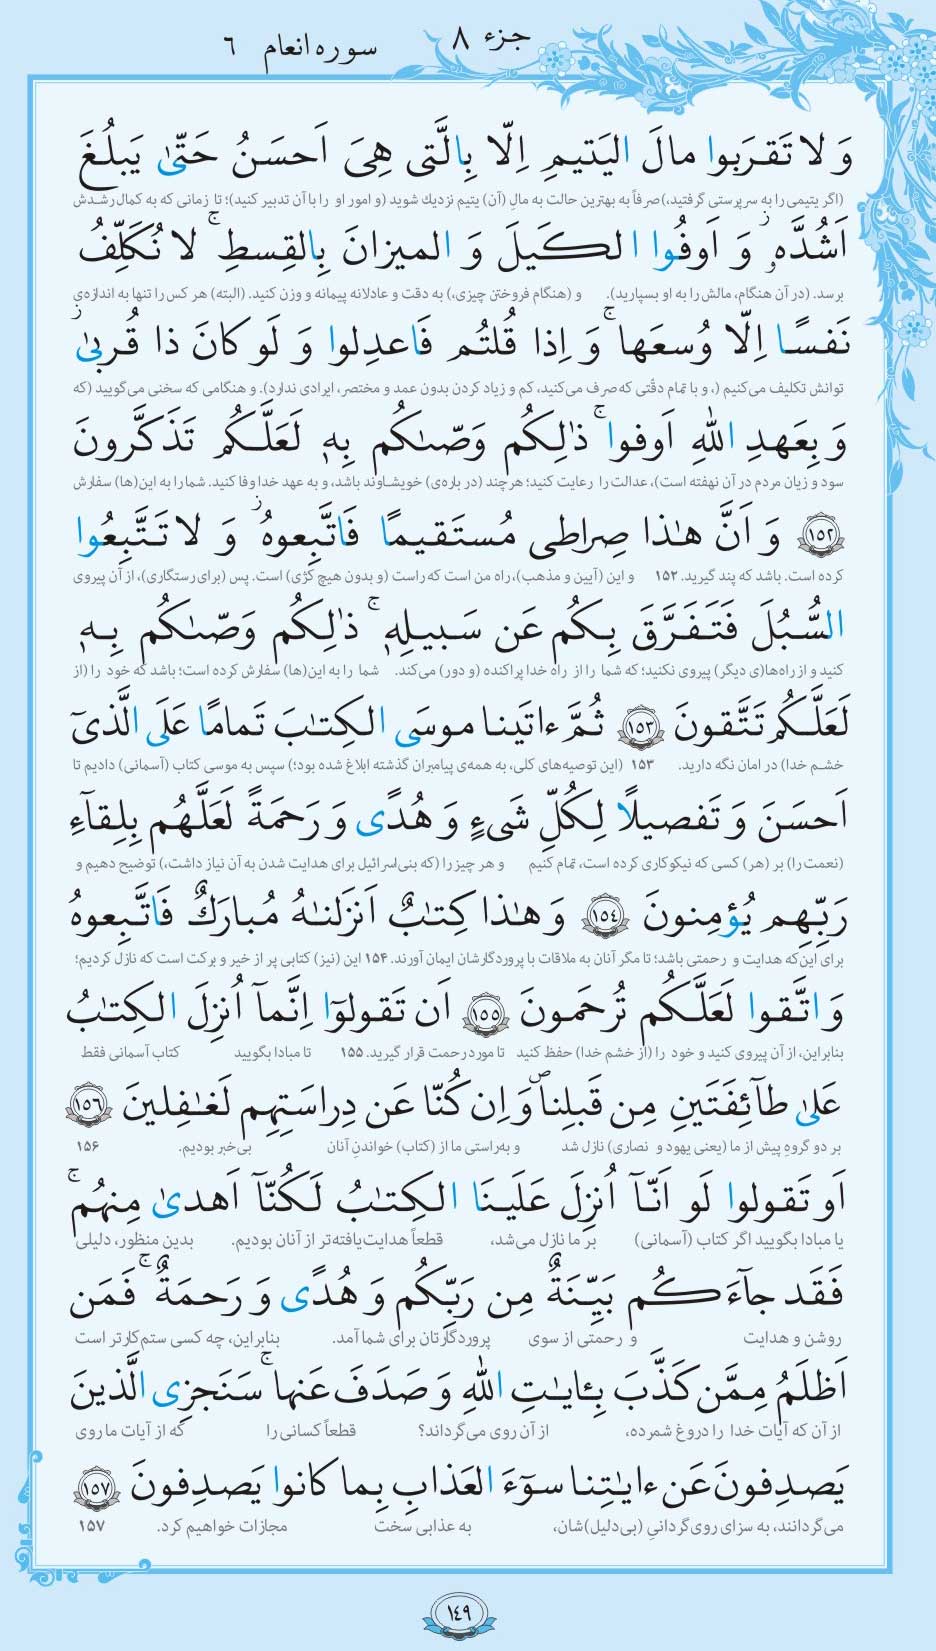 جزء ۸
سوره انعام ۶
وَ لا تَقرَبوا مالَ اليَتيمِ اِلّا بِالَّتى هِىَ اَحسَنُ حَتّىٰ يَبلُغَ
(اگر یتیمی را به سرپرستی گرفتید،) صرفاً به بهترین حالت به مالِ (آن) یتیم نزدیک شوید (و امور او را با آن تدبیر کنید)؛ تا زمانی که به کمال رشدش
اَشُدَّهٗ ۖ وَ اَوفُوا الكَيلَ وَ الميزانَ بِالقِسطِ ۚ لا نُكَلِّفُ
برسد. (در آن هنگام، مالش را به او بسپارید). و (هنگام فروختن چیزی،) به دقت و عادلانه پیمانه و وزن کنید. (البته) هر کس را تنها به اندازه‌ی
نَفسًا اِلّا وُسعَها ۚ وَ اِذا قُلتُم فَاعدِلوا وَ لَو كانَ ذا قُربىٰ ۖ
توانش تکلیف می‌کنیم (، و با تمام دقّتی که صرف می‌کنید، کم و زیاد کردن بدون عمد و مختصر، ایرادی ندارد). و هنگامی که سخنی می‌گویید (که
وَ بِعَهدِ اللهِ اَوفوا ۚ ذٰلِكُم وَصّىٰكُم بِهٖ لَعَلَّكُم تَذَكَّرونَ
سود و زیان مردم در آن نهفته است)، عدالت را رعایت کنید؛ هرچند (در باره‌ی) خویشاوند باشد، و به عهد خدا وفا کنید. شما را به این(ها) سفارش
﴿۱۵۲﴾ وَ اَنَّ هٰذا صِراطى مُستَقيمًا فَاتَّبِعوهُ ۖ وَ لا تَتَّبِعُوا
کرده است. باشد که پند گیرید. ۱۵۲ و این (آیین و مذهب)، راه من است که راست (و بدون هیچ کژی) است. پس (برای رستگاری)، از آن پیروی
السُّبُلَ فَتَفَرَّقَ بِكُم عَن سَبيلِهٖ ۚ ذٰلِكُم وَصّىٰكُم بِهٖ
کنید و از راه‌ها(ی دیگر) پیروی نکنید؛ که شما را از راه خدا پراکنده (و دور) می‌کند. شما را به این(ها) سفارش کرده است؛ باشد که خود را (از
لَعَلَّكُم تَتَّقونَ ﴿۱۵۳﴾ ثُمَّ ءاتَينا موسَى الكِتٰبَ تَمامًا عَلَى الَّذىٓ
خشم خدا) در امان نگه دارید. ۱۵۳ (این توصیه‌های کلی، به همه‌ی پیامبران گذشته ابلاغ شده بود؛) سپس به موسی کتاب (آسمانی) دادیم تا
اَحسَنَ وَ تَفصيلًا لِكُلِّ شَىءٍ وَ هُدًى وَ رَحمَةً لَعَلَّهُم بِلِقآءِ
(نعمت را) بر (هر) کسی که نیکوکاری کرده است، تمام کنیم و هر چیز را (که بنی‌اسرائیل برای هدایت شدن به آن نیاز داشت،) توضیح دهیم و
رَبِّهِم يُؤمِنونَ ﴿۱۵۴﴾ وَ هٰذا كِتٰبٌ اَنزَلنٰهُ مُبارَكٌ فَاتَّبِعوهُ
برای این‌که هدایت و رحمتی باشد؛ تا مگر آنان به ملاقات با پروردگارشان ایمان آورند. ۱۵۴ این (نیز) کتابی پر از خیر و برکت است که نازل کردیم؛
وَ اتَّقوا لَعَلَّكُم تُرحَمونَ ﴿۱۵۵﴾ اَن تَقولوٓا اِنَّمآ اُنزِلَ الكِتٰبُ
بنابراین، از آن پیروی کنید و خود را (از خشم خدا) حفظ کنید تا مورد رحمت قرار گیرید. ۱۵۵ تا مبادا بگویید کتاب آسمانی فقط
عَلىٰ طآئِفَتَينِ مِن قَبلِنا ۖ وَ اِن كُنّا عَن دِراسَتِهِم لَغٰفِلينَ ﴿۱۵۶﴾
بر دو گروهِ پیش از ما (یعنی یهود و نصاری) نازل شد و به‌راستی ما از (کتاب) خواندنِ آنان بی‌خبر بودیم. ۱۵۶
اَو تَقولوا لَو اَنّآ اُنزِلَ عَلَينَا الكِتٰبُ لَكُنّآ اَهدىٰ مِنهُم ۚ
یا مبادا بگویید اگر کتاب (آسمانی) بر ما نازل می‌شد، قطعاً هدایت‌یافته‌تر از آنان بودیم. بدین منظور، دلیلی
فَقَد جآءَكُم بَيِّنَةٌ مِن رَبِّكُم وَ هُدًى وَ رَحمَةٌ ۚ فَمَن
روشن و هدایت و رحمتی از سوی پروردگارتان برای شما آمد. بنابراین، چه کسی ستم‌کارتر است
اَظلَمُ مِمَّن كَذَّبَ بِـٔايٰتِ اللهِ وَ صَدَفَ عَنها ۚ سَنَجزِى الَّذينَ
از آن که آیات خدا را دروغ شمرده، از آن روی می‌گرداند؟ قطعاً کسانی را که از آیات ما روی
يَصدِفونَ عَن ءايٰتِنا سوٓءَ العَذابِ بِما كانوا يَصدِفونَ ﴿۱۵۷﴾
می‌گردانند، به سزای روی‌گردانیِ (بی‌دلیل)شان، به عذابی سخت مجازات خواهیم کرد. ۱۵۷
۱۴۹